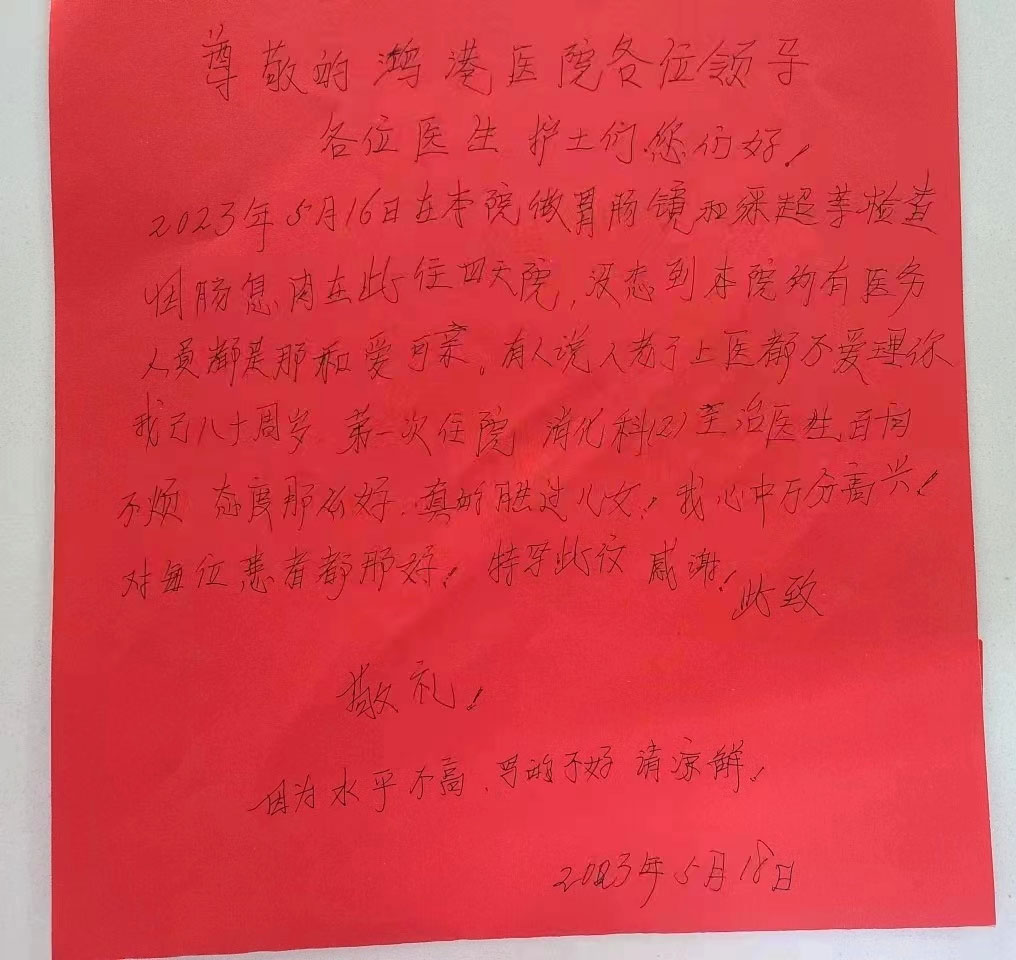 尊敬的鸿港医院各位领导
各位医生 护士们您们好！
2023年5月16日在本院做胃肠镜和彩超等检查
因肠息肉在此住四天院，没想到本院的有医务
人员都是那和爱可亲。有人说人老了上医都不爱理你
我已八十周岁 第一次住院 消化科(2)主治医生百问
不烦 态度那么好.真的胜过儿女！我心中万分高兴！
对每位患者都那好！特写此文 感谢！
此致
敬礼！
因为水平不高.写的不好 请凉解！
2023年5月18日